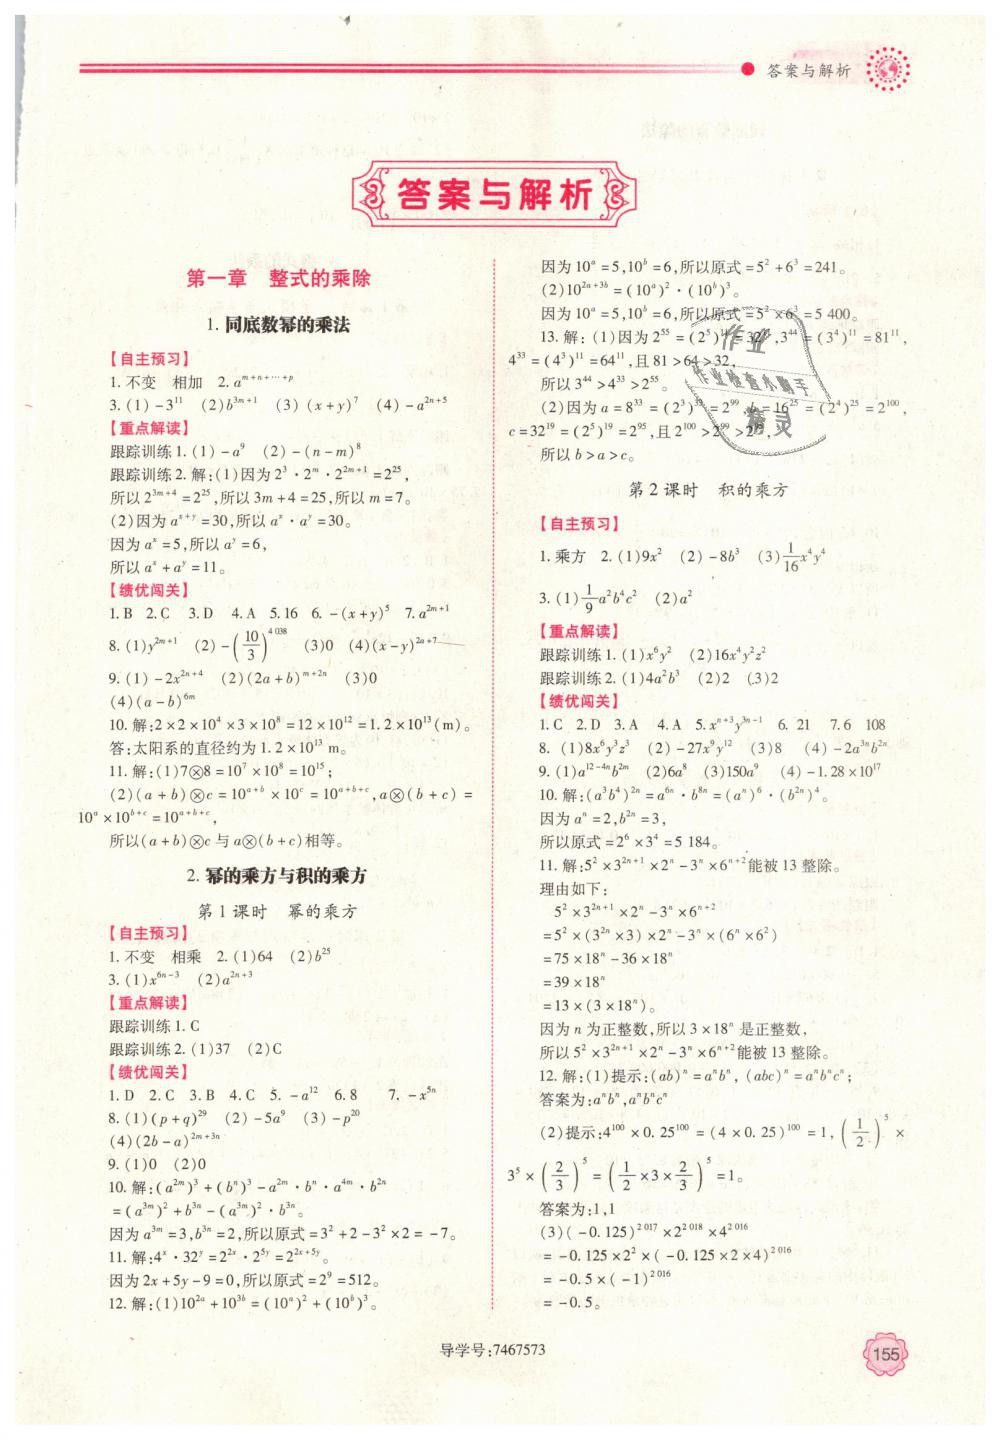 答案与解析
答案与解析
第一章　整式的乘除
1. 同底数幂的乘法
【自主预习】
1. 不变　相加　2. a^{m+n+…+p}
3. (1) -3^{11}　(2)b^{3m+1}　(3) (x+y)^7　(4) -a^{2n+5}
【重点解读】
跟踪训练1. (1) -a^9　(2) -(n-m)^8
跟踪训练2. 解:(1)因为2^3·2^m·2^{2m+1}=2^{25},
所以2^{3m+4}=2^{25},所以3m+4=25,所以m=7。
(2)因为a^{x+y}=30,所以a^x·a^y=30。
因为a^x=5,所以a^y=6,
所以a^x+a^y=11。
【绩优闯关】
1. B　2. C　3. D　4. A　5. 16　6. -(x+y)^5　7. a^{2m+1}
8. (1)y^{2m+1}　(2) -(10/3)^{4 038}　(3)0　(4)(x-y)^{2a+7}
9. (1) -2x^{2n+4}　(2)(2a+b)^{m+2n}　(3)0
(4)(a-b)^{6m}
10. 解:2×2×10^4×3×10^8=12×10^{12}=1.2×10^{13}(m)。
答:太阳系的直径约为1.2×10^{13} m。
11. 解:(1)7⊗8=10^7×10^8=10^{15};
(2)(a+b)⊗c=10^{a+b}×10^c=10^{a+b+c},a⊗(b+c)=
10^a×10^{b+c}=10^{a+b+c},
所以(a+b)⊗c与a⊗(b+c)相等。
2. 幂的乘方与积的乘方
第1课时　幂的乘方
【自主预习】
1. 不变　相乘　2. (1)64　(2)b^{25}
3. (1)x^{6n-3}　(2)a^{2n+3}
【重点解读】
跟踪训练1. C
跟踪训练2. (1)37　(2)C
【绩优闯关】
1. D　2. C　3. B　4. C　5. -a^{12}　6. 8　7. -x^{5n}
8. (1)(p+q)^{29}　(2) -5a^9　(3) -p^{20}
(4)(2b-a)^{2m+3n}
9. (1)0　(2)0
10. 解:(a^{2m})^3+(b^n)^3-a^{2m}·b^n·a^{4m}·b^{2n}
=(a^{3m})^2+b^{3n}-(a^{3m})^2·b^{3n}。
因为a^{3m}=3,b^{3n}=2,所以原式=3^2+2-3^2×2=-7。
11. 解:4^x·32^y=2^{2x}·2^{5y}=2^{2x+5y}。
因为2x+5y-9=0,所以原式=2^9=512。
12. 解:(1)10^{2a}+10^{3b}=(10^a)^2+(10^b)^3。
因为10^a=5,10^b=6,所以原式=5^2+6^3=241。
(2)10^{2a+3b}=(10^a)^2·(10^b)^3。
因为10^a=5,10^b=6,所以原式=5^2×6^3=5 400。
13. 解:(1)因为2^{55}=(2^5)^{11}=32^{11},3^{44}=(3^4)^{11}=81^{11},
4^{33}=(4^3)^{11}=64^{11},且81>64>32,
所以3^{44}>4^{33}>2^{55}。
(2)因为a=8^{33}=(2^3)^{33}=2^{99},b=16^{25}=(2^4)^{25}=2^{100},
c=32^{19}=(2^5)^{19}=2^{95},且2^{100}>2^{99}>2^{95},
所以b>a>c。
作业
作业检查小助手
精灵
第2课时　积的乘方
【自主预习】
1. 乘方　2. (1)9x^2　(2) -8b^3　(3)1/16 x^4y^4
3. (1)1/9 a^2b^4c^2　(2)a^2
【重点解读】
跟踪训练1. (1)x^6y^2　(2)16x^4y^2z^2
跟踪训练2. (1)4a^2b^3　(2)2　(3)2
【绩优闯关】
1. C　2. D　3. A　4. A　5. x^{n+3}y^{3n-1}　6. 21　7. 6　108
8. (1)8x^6y^3z^3　(2) -27x^9y^{12}　(3)8　(4) -2a^{3n}b^{2n}
9. (1)a^{12-4n}b^{2m}　(2)6a^8　(3)150a^9　(4) -1.28×10^{17}
10. 解:(a^3b^4)^{2n}=a^{6n}·b^{8n}=(a^n)^6·(b^{2n})^4。
因为a^n=2,b^{2n}=3,
所以原式=2^6×3^4=5 184。
11. 解:5^2×3^{2n+1}×2^n-3^n×6^{n+2}能被13整除。
理由如下:
5^2×3^{2n+1}×2^n-3^n×6^{n+2}
=5^2×(3^{2n}×3)×2^n-3^n×(6^n×6^2)
=75×18^n-36×18^n
=39×18^n
=13×(3×18^n)。
因为n为正整数,所以3×18^n是正整数,
所以5^2×3^{2n+1}×2^n-3^n×6^{n+2}能被13整除。
12. 解:(1)提示:(ab)^n=a^nb^n,(abc)^n=a^nb^nc^n;
答案为:a^nb^n,a^nb^nc^n
(2)提示:4^{100}×0.25^{100}=(4×0.25)^{100}=1,(1/2)^5×
3^5×(2/3)^5=(1/2×3×2/3)^5=1。
答案为:1,1
(3)(-0.125)^{2 017}×2^{2 018}×4^{2 016}
=-0.125×2^2×(-0.125×2×4)^{2 016}
=-0.5×(-1)^{2 016}
=-0.5。
导学号:7467573
155